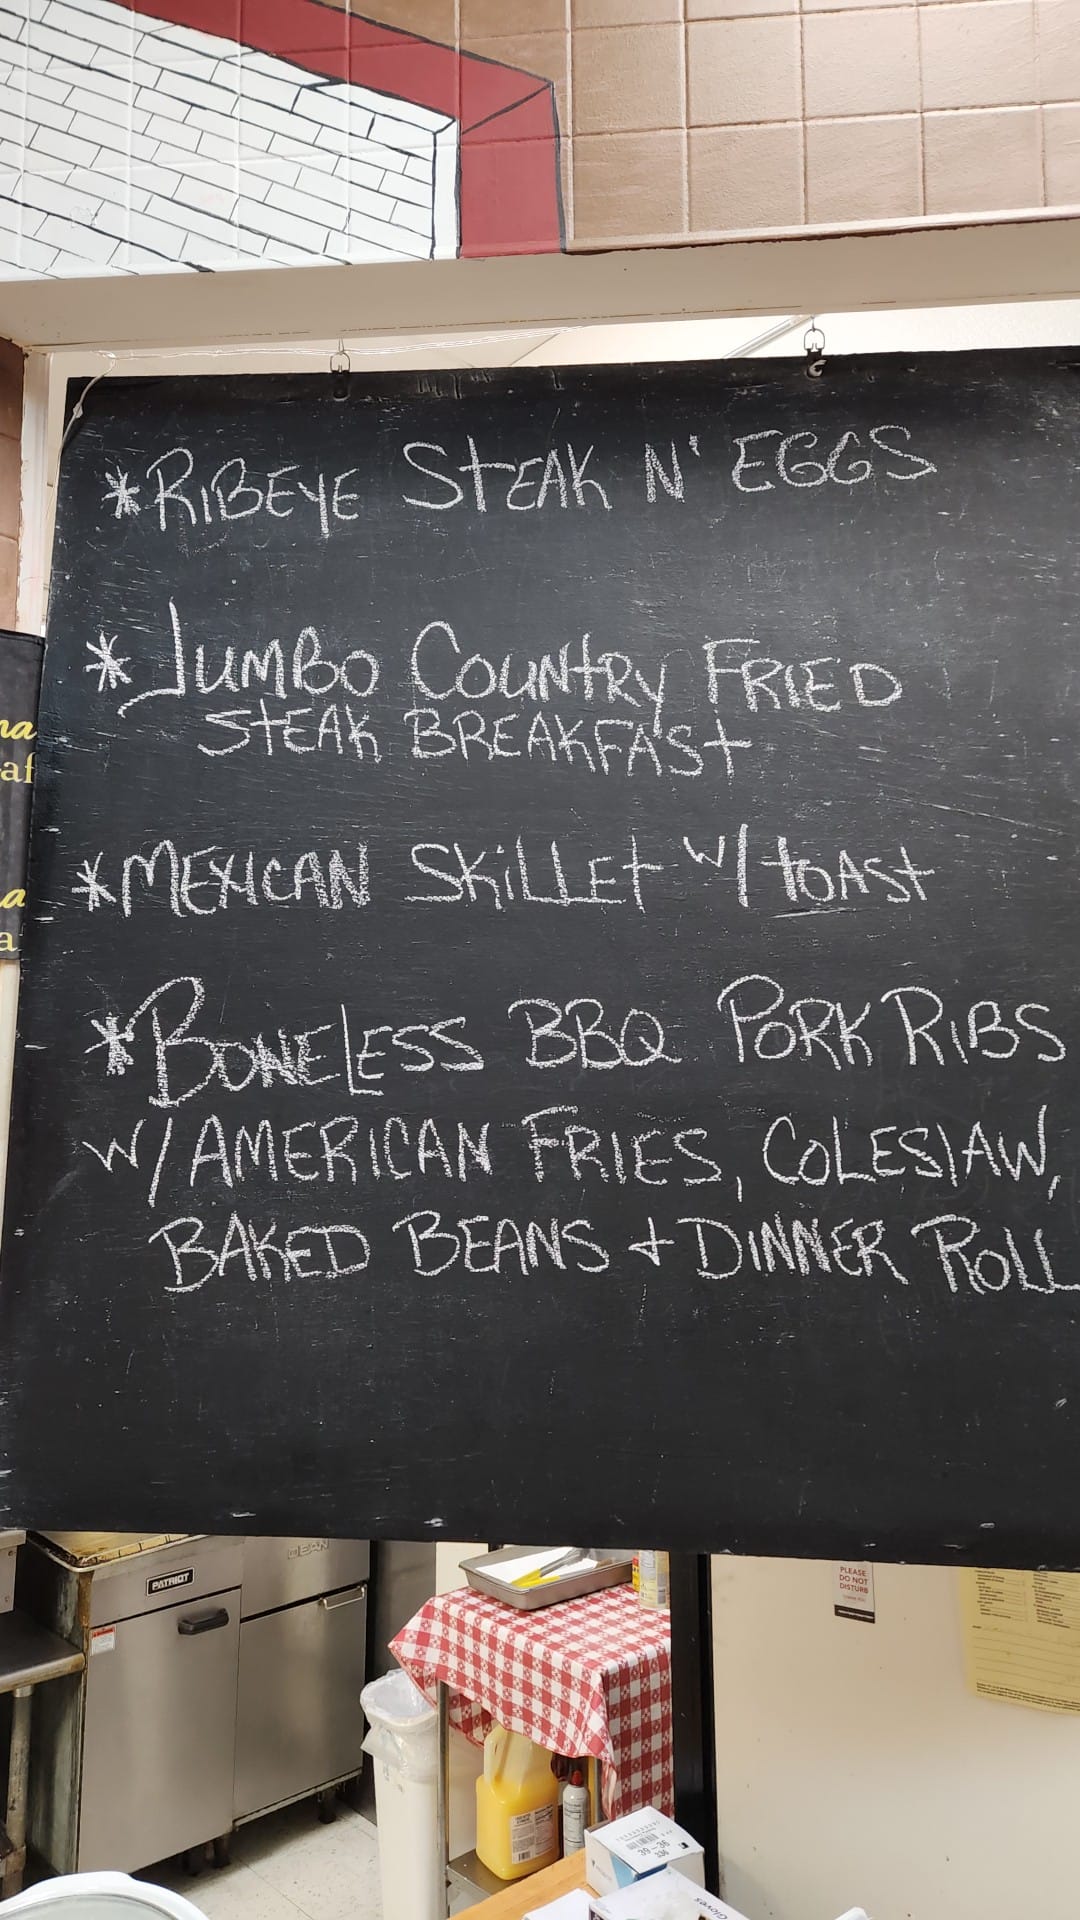 *RIBEYE STEAK N' EGGS
*JUMBO COUNTRY FRIED
STEAK BREAKFAST
*MEXICAN SKILLET W/ TOAST
*BONELESS BBQ PORK RIBS
W/ AMERICAN FRIES, COLESLAW,
BAKED BEANS + DINNER ROLL
na
af
a
a
PATRIOT
DEAN
PLEASE
DO NOT
DISTURB
39-36
336
Gloves